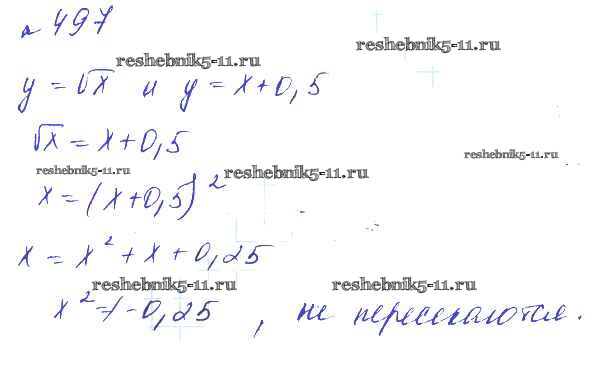 № 497
reshebnik5-11.ru
reshebnik5-11.ru
y = √x и y = x + 0,5
√x = x + 0,5
reshebnik5-11.ru
reshebnik5-11.ru
reshebnik5-11.ru
x = (x + 0,5)²
x = x² + x + 0,25
reshebnik5-11.ru
reshebnik5-11.ru
x² ≠ -0,25, не пересекаются.